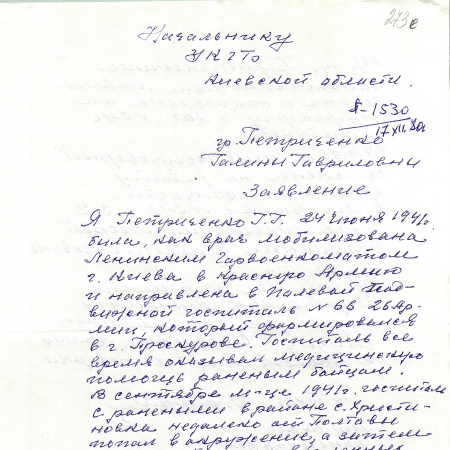 273е
Начальнику
УКГБ
Киевской области.
1530
17 XII. 80г
гр. Петриченко
Галины Гавриловны
Заявление
Я Петриченко Г.Г. 24 июня 1941г.
была, как врач мобилизована
Ленинским Горвоенкоматом
г. Киева в Красную Армию
и направлена в Полевой Под-
вижной госпиталь N 66 26 Ар-
мии, который формировался
в г. Проскурове. Госпиталь все
время оказывал медицинскую
помощь раненым бойцам.
В сентябре м-це 1941г. госпиталь
с ранеными в районе с. Христи-
новка недалеко от Полтавы
попал в окружение, а затем